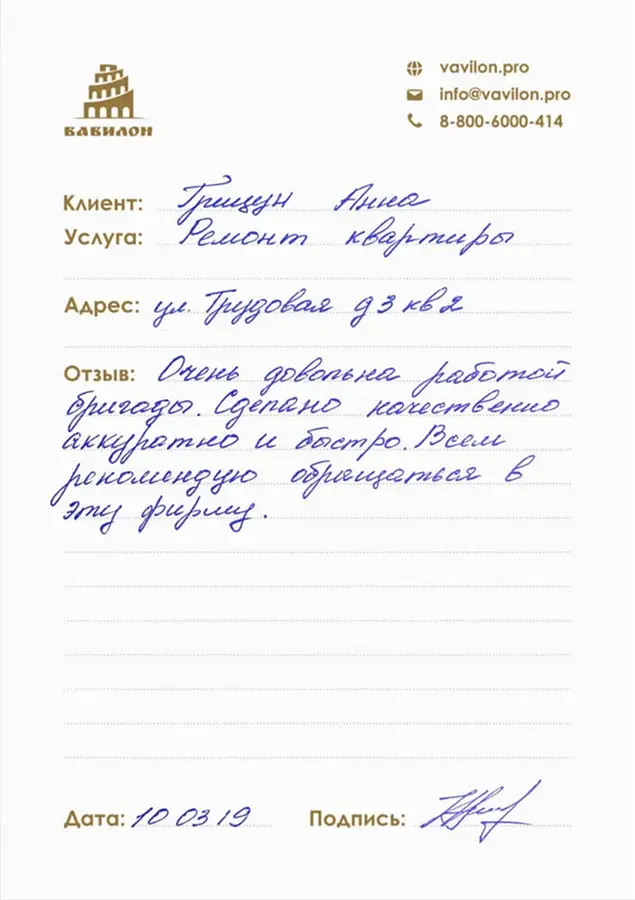 ВАВИЛОН
vavilon.pro
info@vavilon.pro
8-800-6000-414
Клиент: Грищун Анна
Услуга: Ремонт квартиры
Адрес: ул. Трудовая д 3 кв 2
Отзыв: Очень довольна работой
бригады. Сделано качественно
аккуратно и быстро. Всем
рекомендую обращаться в
эту фирму.
Дата: 10 03 19 Подпись: